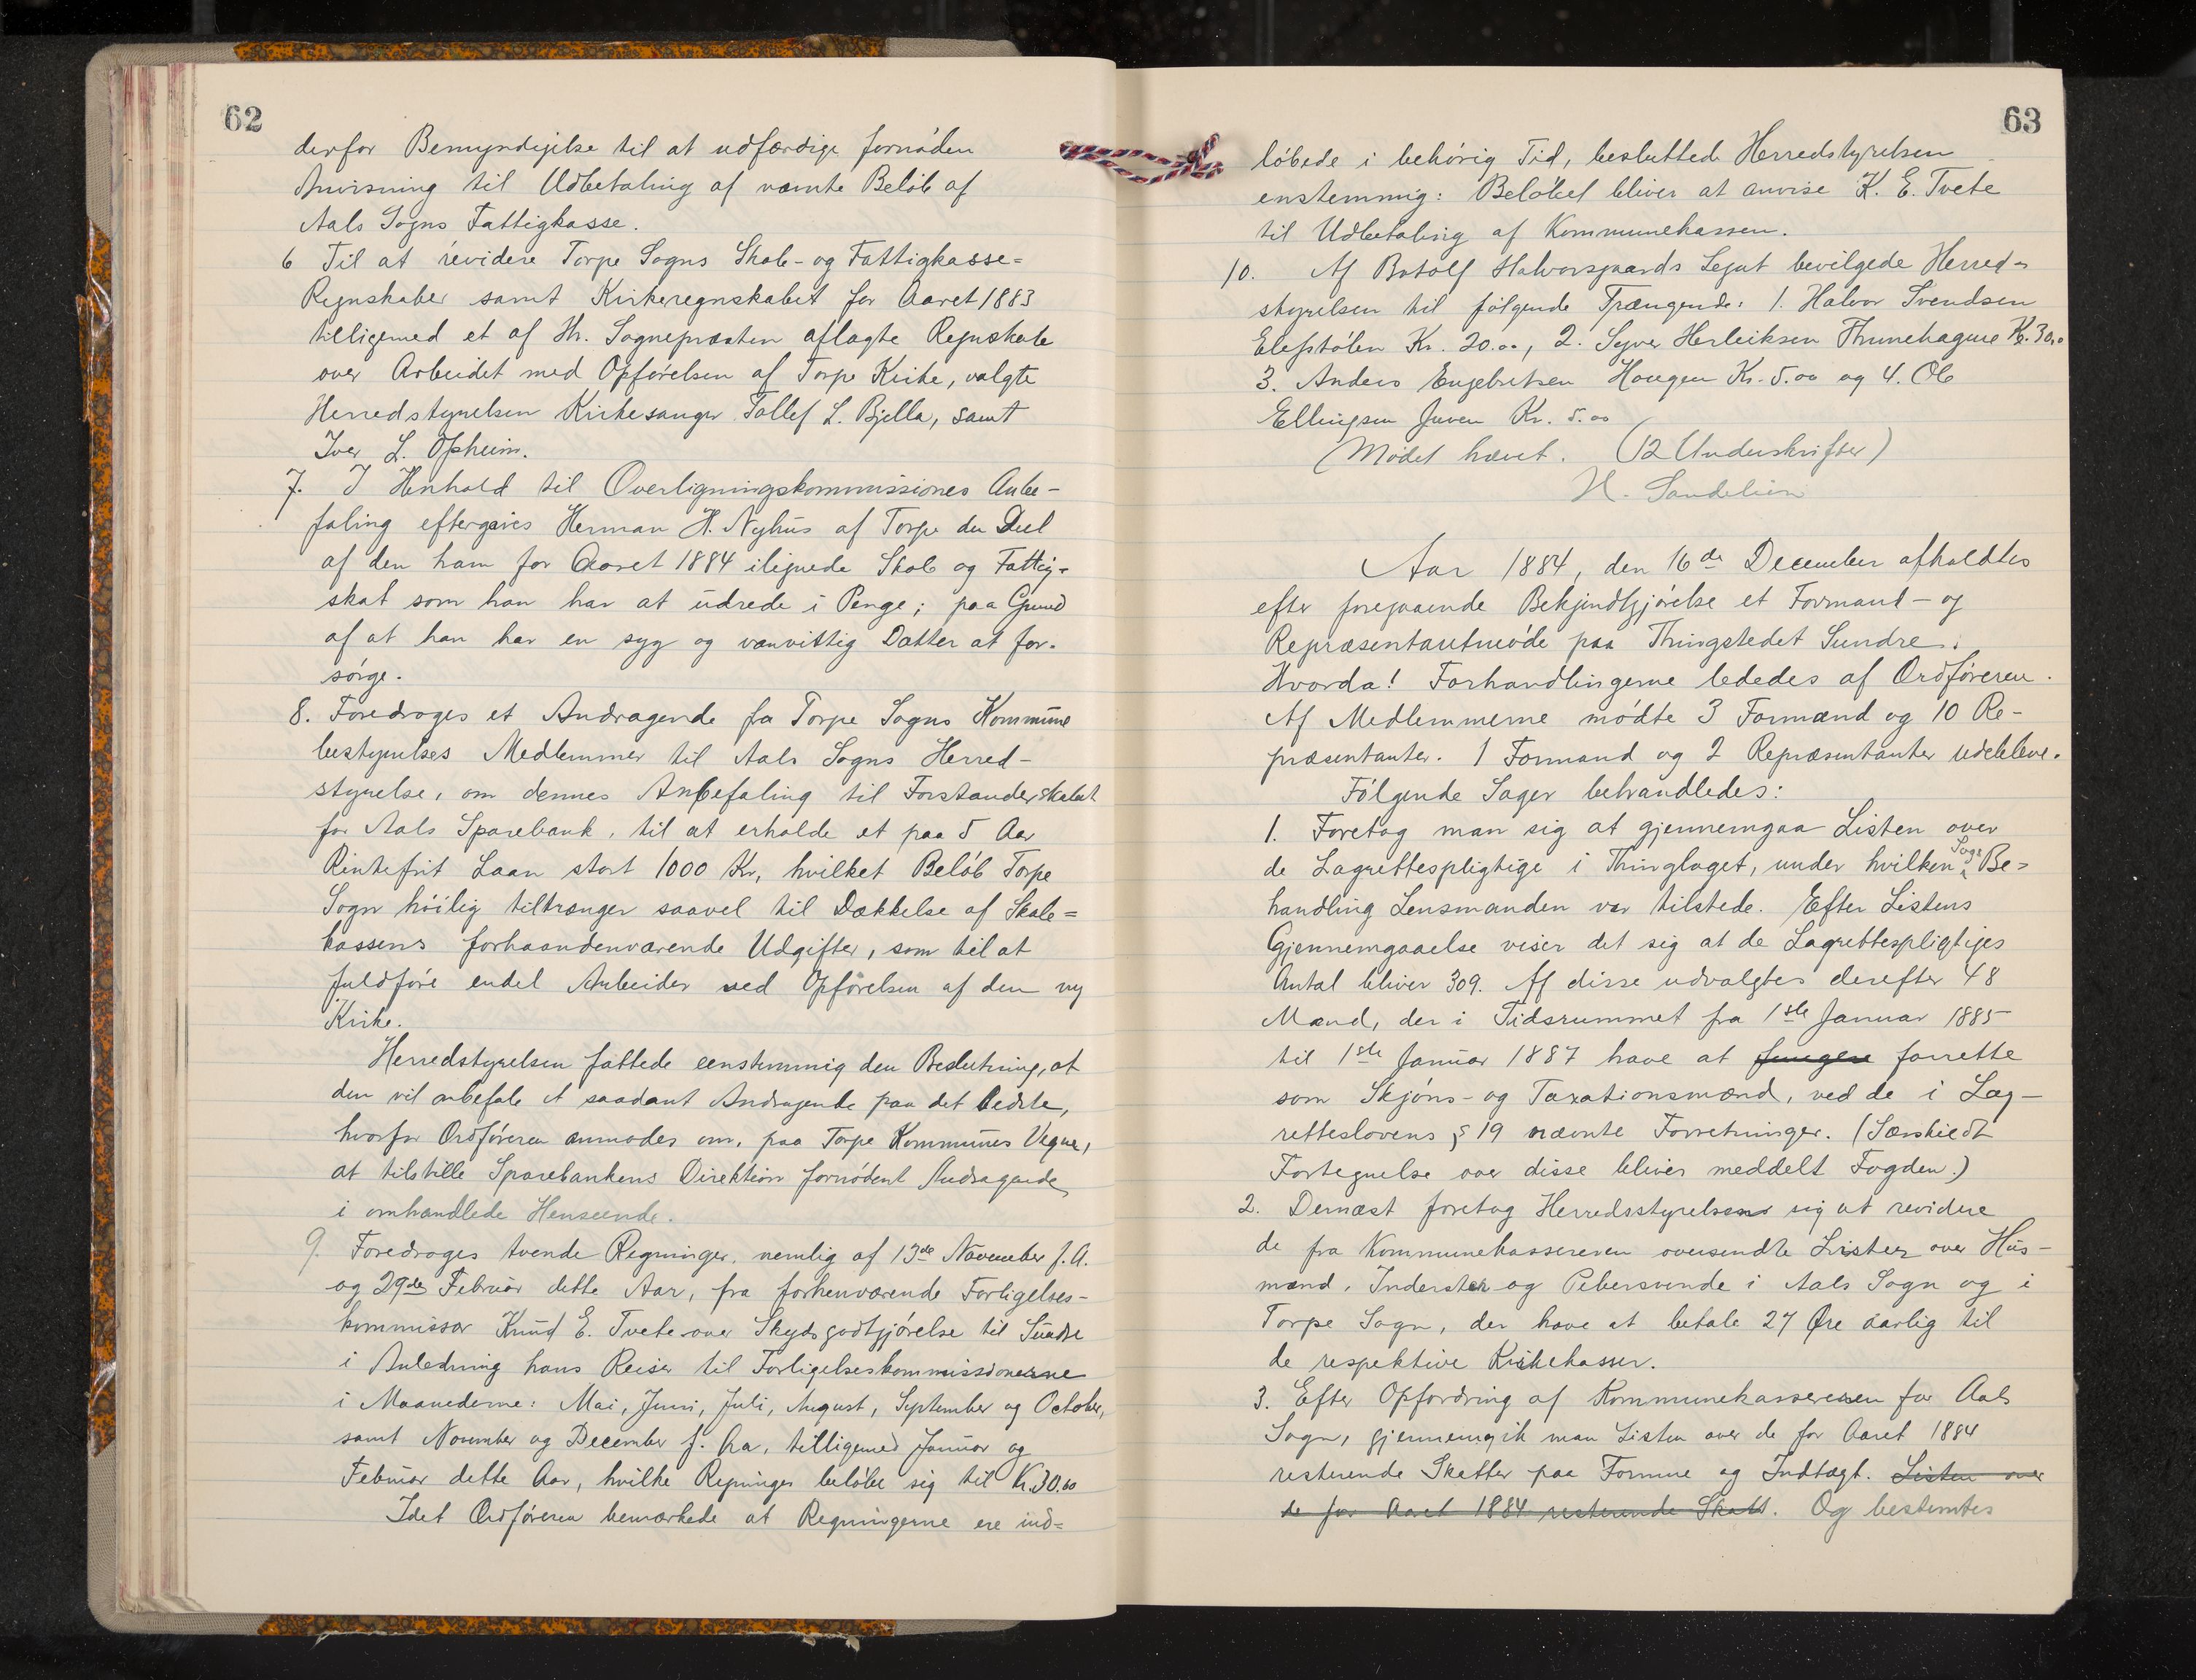 62
derfor Bemyndigelse til at udfærdige fornøden
Anvisning til Udbetaling af nævnte Beløb af
Aals Sogns Fattigkasse.
6 Til at revidere Torpe Sogns Skole- og Fattigkasse=
Regnskaber samt Kirkeregnskabet for Aaret 1883
tilligemed et af Hr. Sognepræsten aflagte Regnskab
over Arbeidet med Opførelsen af Torpe Kirke, valgte
Herredstyrelsen Kirkesanger Tollef L. Bjella, samt
Iver L. Opheim.
7. I Henhold til Overligningskommissiones Anbe-
faling eftergives Herman H. Nyhus af Torpe den Deel
af den ham for Aaret 1884 ilignede Skole og Fattig-
skat som han har at udrede i Penge; paa Grund
af at han har en syg og vanvittig Datter at for-
sørge.
8. Foredroges et Andragende fra Torpe Sogns Kommune
bestyrelses Medlemmer til Aals Sogns Herred-
styrelse, om dennes Anbefaling til Forstanderskabet
for Aals Sparebank, til at erholde et paa 5 Aar
Rintefrit Laan stort 1000 Kr, hvilket Beløb Torpe
Sogn høilig tiltrænger saavel til Dækkelse af Skole=
kassens forhaandenværende Udgifter, som til at
fuldføre endel Arbeider ved Opførelsen af den ny
Kirke.
Herredstyrelsen fattede eenstemmig den Beslutning, at
den vil anbefale et saadant Andragende paa det bedste,
hvorfor Ordføreren anmodes om, paa Torpe Kommunes Vegne,
at tilstille Sparebankens Direktion fornødent Andragende
i omhandlede Henseende.
9. Foredroges tvende Regninger, nemlig af 13de November f.A.
og 29de Februar dette Aar, fra forhenværende Forligelses-
kommissær Knud E. Tvete over Skydsgodtgjørelse til Sundre
i Anledning hans Reiser til Forligelseskommissionerne
i Maanederne: Mai, Juni, Juli, August, September og October,
samt November og December f. Aa, tilligemed Januar og
Februar dette Aar, hvilke Regninger beløbe sig til Kr. 30.60
Idet Ordføreren bemærkede at Regningerne ere ind=
63
løbede i behørig Tid, besluttede Herredstyrelsen
enstemmig: Beløbet bliver at anvise K. E. Tvete
til Udbetaling af Kommunekassen.
10. Af Botolf Halvorsgaards Legat bevilgede Herred-
styrelsen til følgende Trængende: 1. Halvor Svendsen
Elefstølen Kr. 20.00, 2. Syver Herleiksen Thunehagune Kr. 30.0
3. Anders Engebretsen Haugen Kr. 5.00 og 4. Ole
Ellingsen Juven Kr. 5.00
Mødet hævet. (12 Underskrifter)
H. Sandelien
Aar 1884, den 16de December afholdtes
efter foregaaende Bekjendtgjørelse et Formand- og
Repræsentantmøde paa Thingstedet Sundre.
Hvorda! Forhandlingerne lededes af Ordføreren.
Af Medlemmerne mødte 3 Formænd og 10 Re-
præsentanter. 1 Formand og 2 Repræsentanter udebleve.
Følgende Sager behandledes:
1. Foretog man sig at gjennemgaa Listen over
de Lagrettespligtige i Thinglaget, under hvilken Sags Be=
handling Lensmanden var tilstede. Efter Listens
Gjennemgaaelse viser det sig at de Lagrettespligtiges
Antal bliver 309. Af disse udvalgtes derefter 48
Mænd, der i Tidsrummet fra 1ste Januar 1885
til 1ste Januar 1887 have at fungere forrette
som Skjøns- og Taxationsmænd, ved de i Lag-
retteslovens § 19 nævnte Forretninger. (Særskiedt
Fortegnelse over disse bliver meddelt Fogden.)
2. Dernæst foretog Herredsstyrelsens sig at revidere
de fra Kommunekassereren oversendte Lister over Hus-
mænd, Inderster og Pebersvende i Aals Sogn og i
Torpe Sogn, der have at betale 27 Øre aarlig til
de respektive Kirkekasser.
3. Efter Opfordring af Kommunekassereren for Aals
Sogn, gjennemgik man Listen over de for Aaret 1884
resterende Skatter paa Formue og Indtægt. Listen over
de for Aaret 1884 resterende Skatt. Og bestemtes